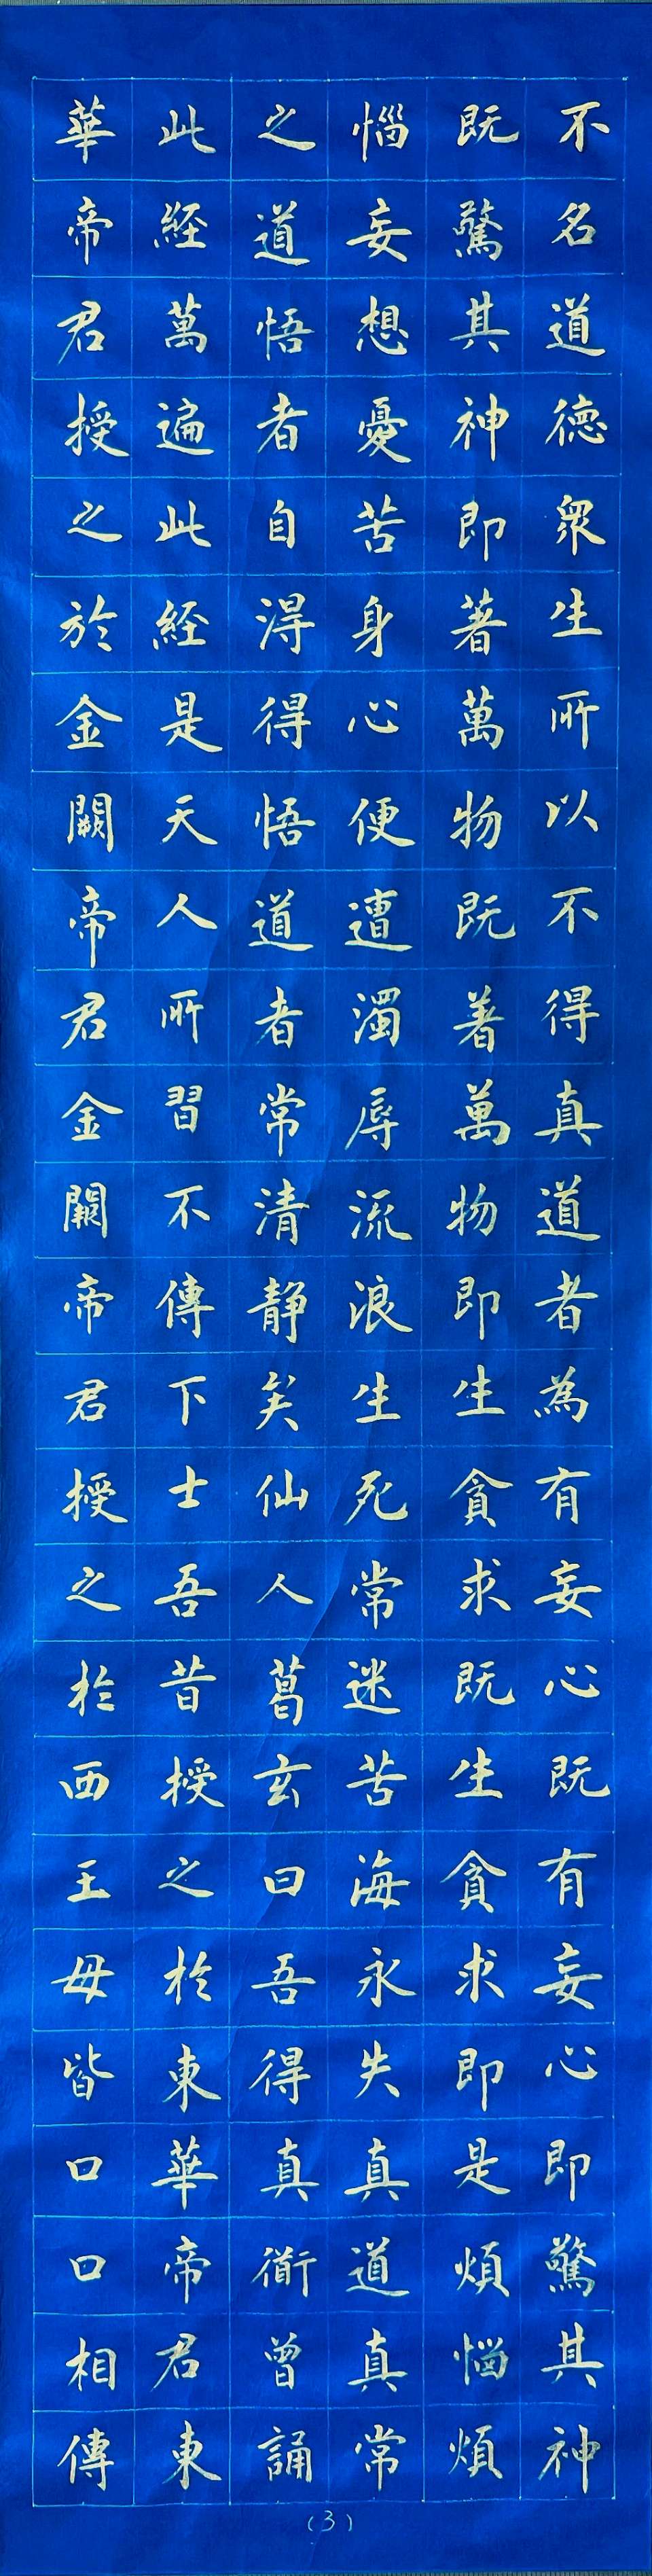 不名道德衆生所以不得真道者為有妄心既有妄心即驚其神
既驚其神即著萬物既著萬物即生貪求既生貪求即是煩惱煩
惱妄想憂苦身心便遭濁辱流浪生死常迷苦海永失真道真常
之道悟者自得得悟道者常清静矣仙人葛玄曰吾得真道曾誦
此経萬遍此経是天人所習不傳下士吾昔授之於東華帝君東
華帝君授之於金闕帝君金闕帝君授之於西王母皆口口相傳
(3)